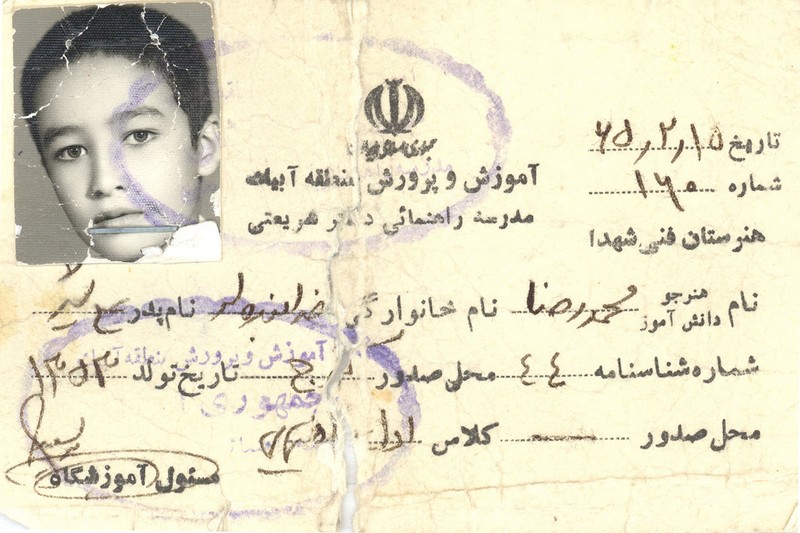 تاریخ ۶۵,۲,۱۵
شماره ۱۶۰
جمهوری اسلامی ایران
آموزش و پرورش منطقه آبیک
مدرسه راهنمائی دکتر شریعتی
هنرستان فنی شهدا
نام هنرجو دانش آموز محمدرضا نام خانوادگی نام پدر
شماره شناسنامه ٤٤ محل صدور تاریخ تولد ۱۳۵۳
محل صدور کلاس اول
مسئول آموزشگاه
آموزش و پرورش منطقه
جمهوری